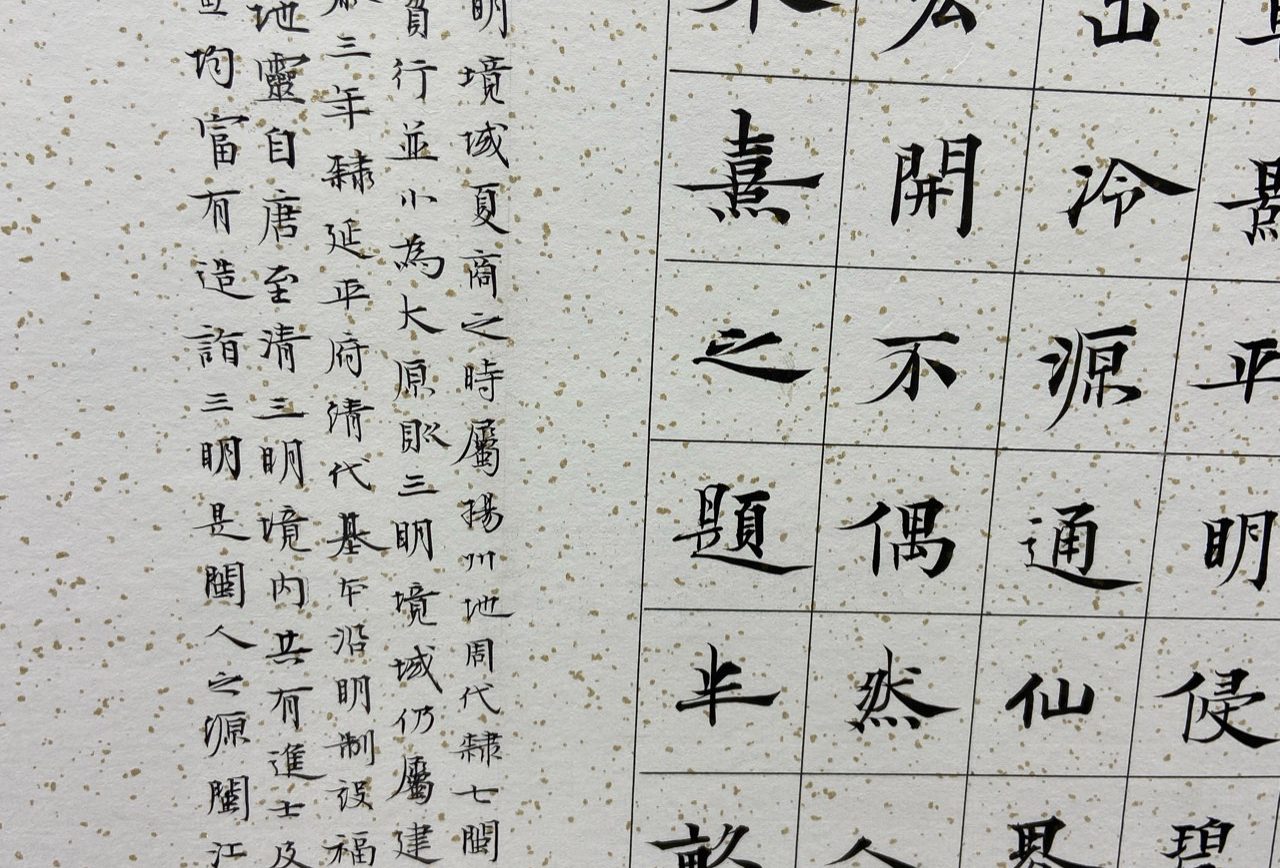 景平明侵碧
出冷源通仙界
宏開不偶然人
熹之題半畝
明境域夏商之時屬揚州地周代隸七閩
貧行並小為大原畝三明境域仍屬建
三年隸延平府清代基本沿明制設福
地靈自唐至清三明境內共有進士及
均富有造詣三明是閩人之源閩江